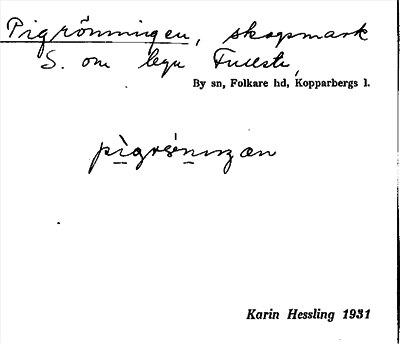 Pigrönningen, skogsmark
S. om byn Fullsta,
By sn, Folkare hd, Kopparbergs l.
Karin Hessling 1931